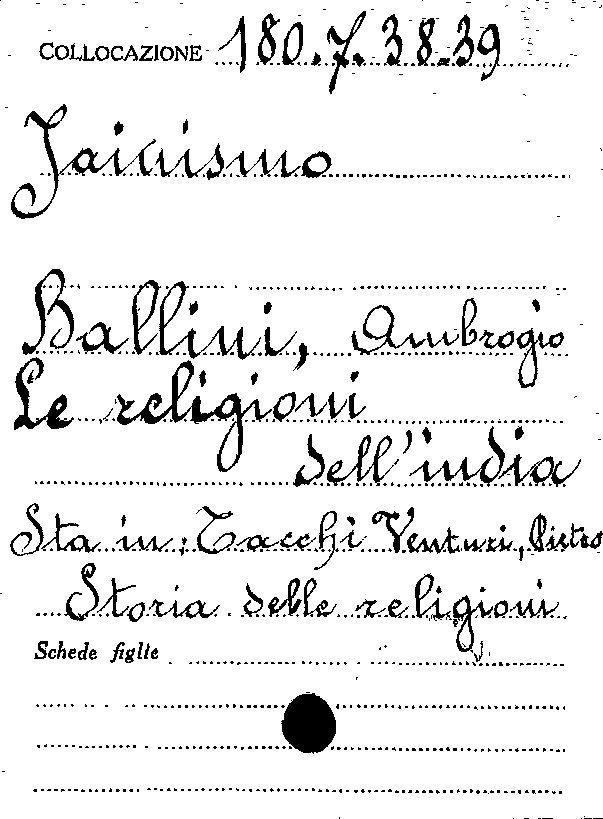 COLLOCAZIONE 180.7.38.39
Jainismo
Ballini, Ambrogio
Le religioni
dell'india
Sta in: Tacchi Venturi, Pietro
Storia delle religioni
Schede figlie